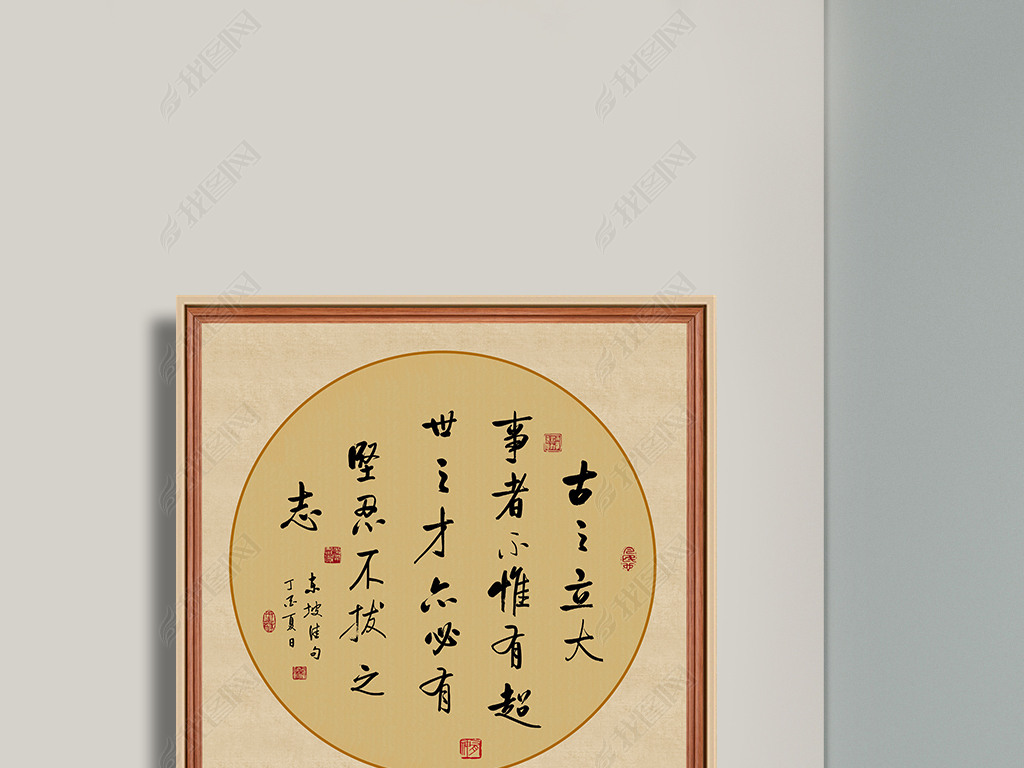 古之立大
事者不惟有超
世之才亦必有
坚忍不拔之
志
东坡佳句
丁酉夏日
找图网